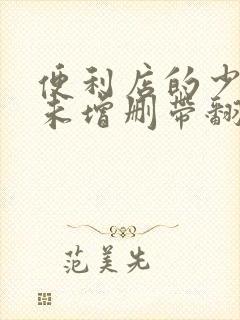 便利店的少
未增删带翻
范美先